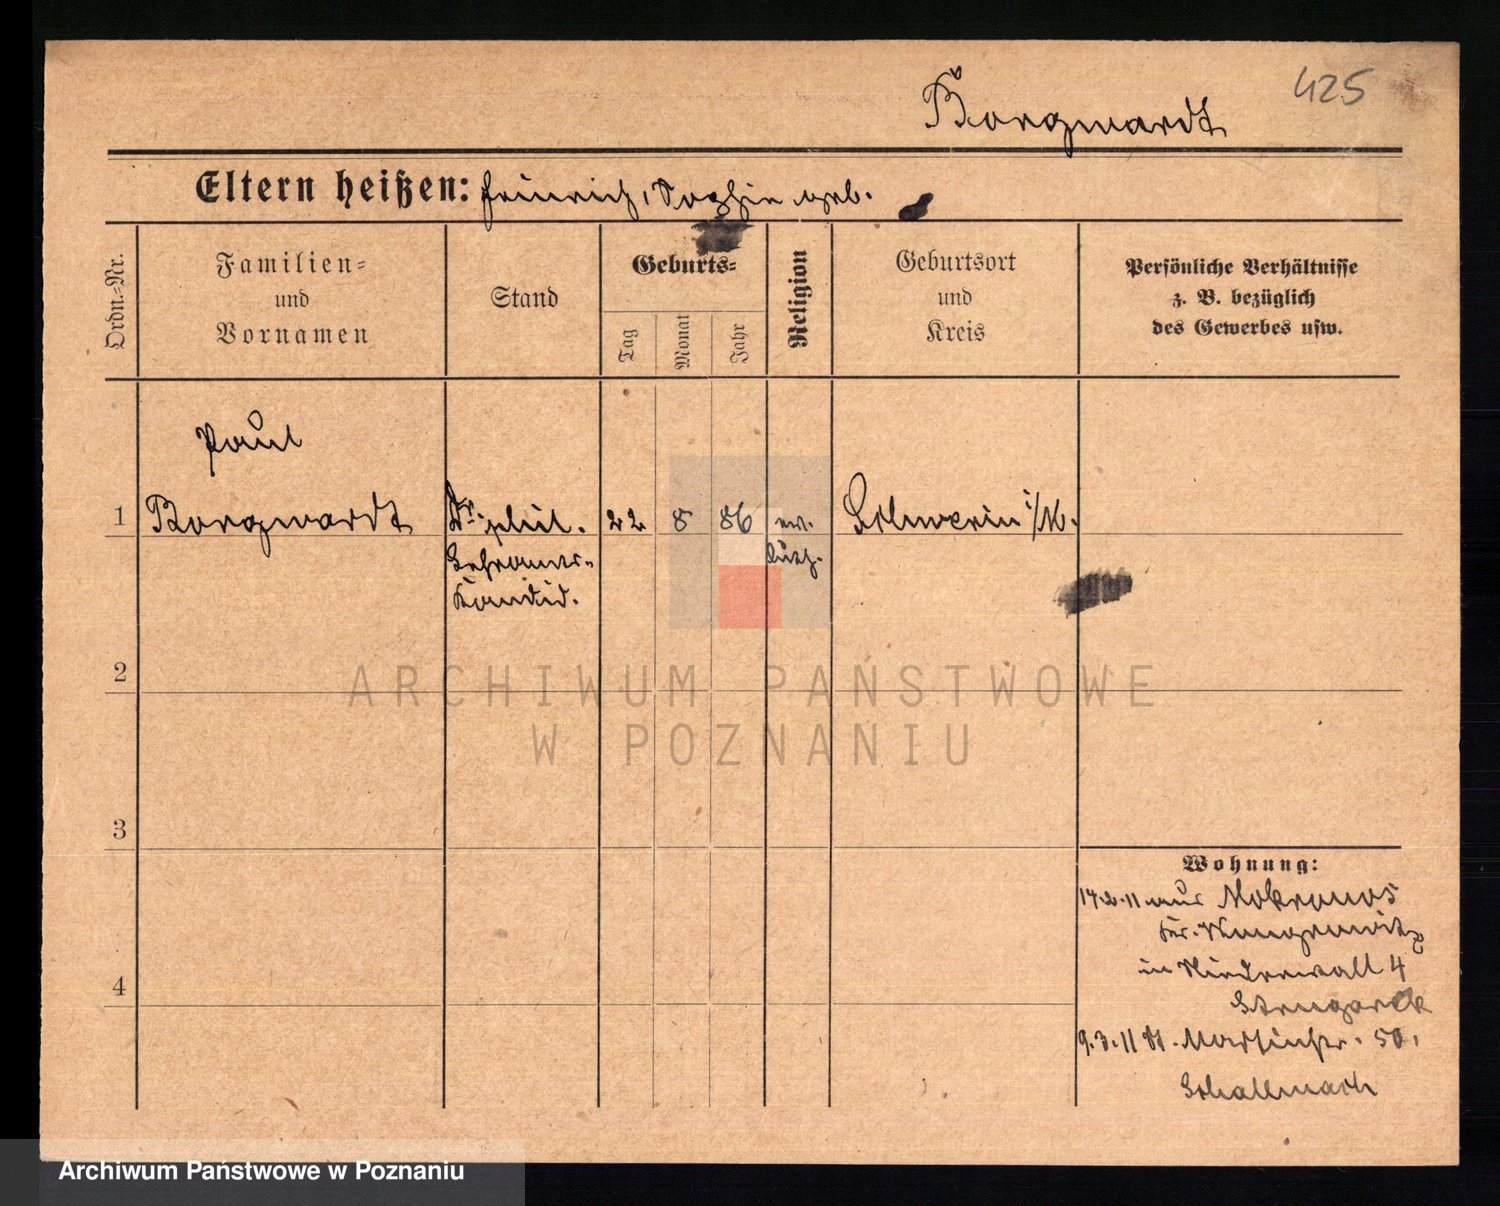 425
Borgwardt
Eltern heißen: Heinrich, Sophie geb.
Ordn.=Nr.
Familien=
und
Vornamen
Stand
Geburts=
Tag
Monat
Jahr
Religion
Geburtsort
und
Kreis
Persönliche Verhältnisse
z. B. bezüglich
des Gewerbes usw.
Paul
1 Borgwardt Dr. phil. 22 8 86 ev. Schwerin i/M.
Lehramts- luth.
Kandid.
2
ARCHIWUM PAŃSTWOWE
W POZNANIU
3
Wohnung:
14.2.11 aus Mokronos
Kr. Wongrowitz
4 in Niederwall 4
9.3.11 St. Martinstr. 50.
Schallmach
Archiwum Państwowe w Poznaniu